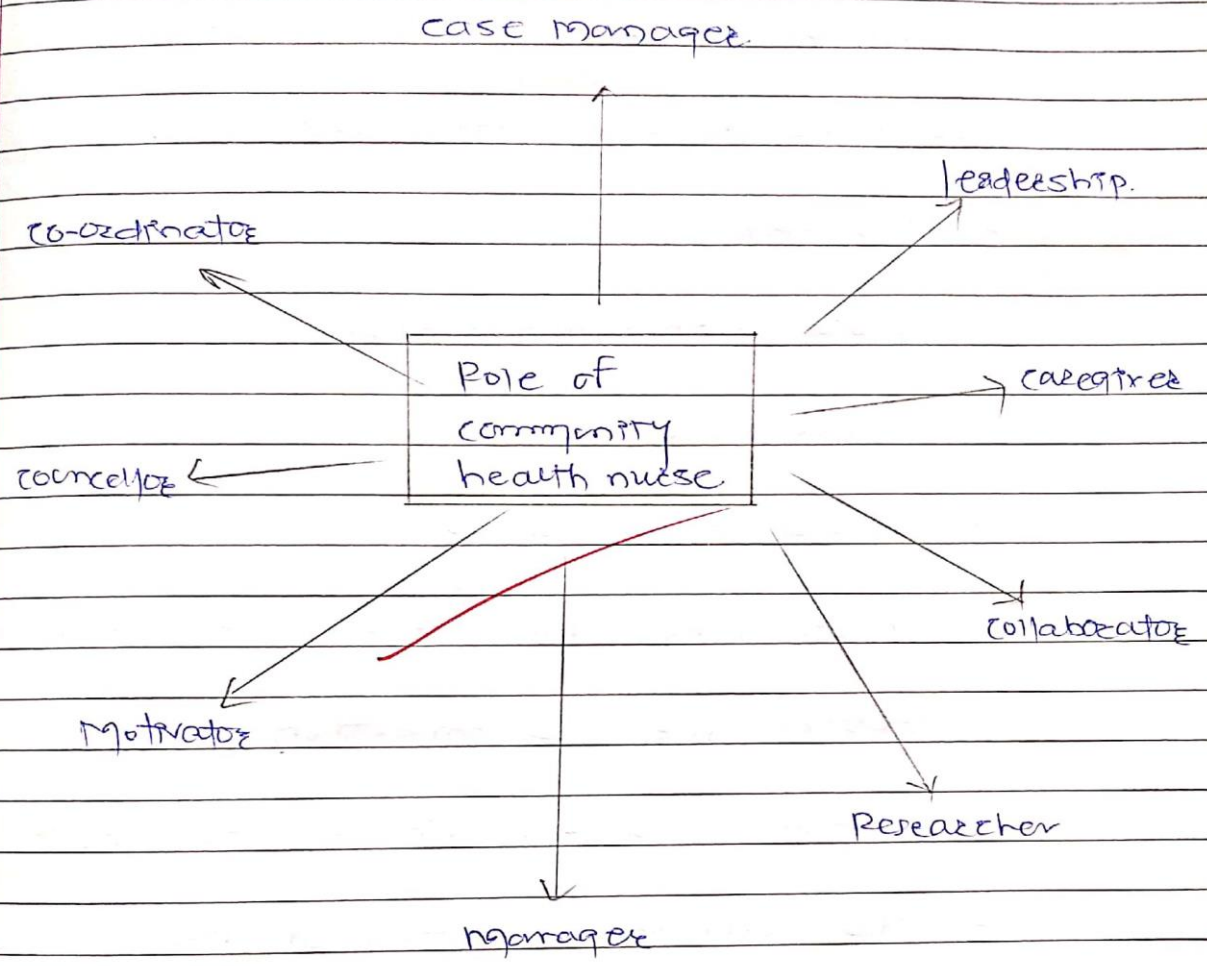 Case Manager.
leadership.
co-ordinator
Role of
community
health nurse
caregiver
councellor
collaborator
Motivator
Researcher
Manager